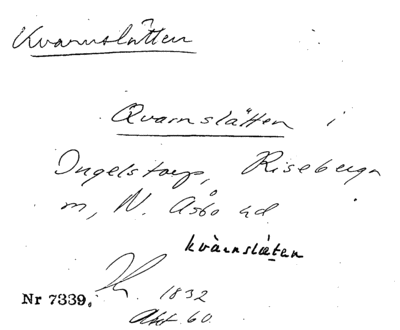 Kvarnslätten
Qvarnslätten i
Ingelstorp, Riseberga
m, N. Åsbo hd
kvarnslätten
Nr 7339. 1832
Akt 60.